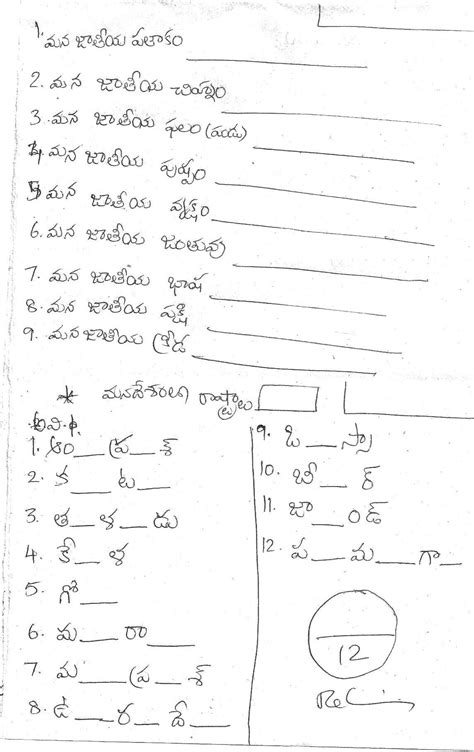 1. మన జాతీయ పతాకం ______
2. మన జాతీయ చిహ్నం ______
3. మన జాతీయ ఫలం (పండు) ______
4. మన జాతీయ పుష్పం ______
5. మన జాతీయ వృక్షం ______
6. మన జాతీయ జంతువు ______
7. మన జాతీయ భాష ______
8. మన జాతీయ పక్షి ______
9. మన జాతీయ క్రీడ ______
* మనదేశంలో రాష్ట్రాలు
అవి.
1. ఆం__ప్ర__శ్
2. క__ట__
3. త__ళ__డు
4. కే__ళ
5. గో__
6. మ__రా__
7. మ__ప్ర__శ్
8. ఉ__ర__దే__
9. ఒ__స్సా
10. బీ__ర్
11. జా__ండ్
12. ప__మ__గా__
12